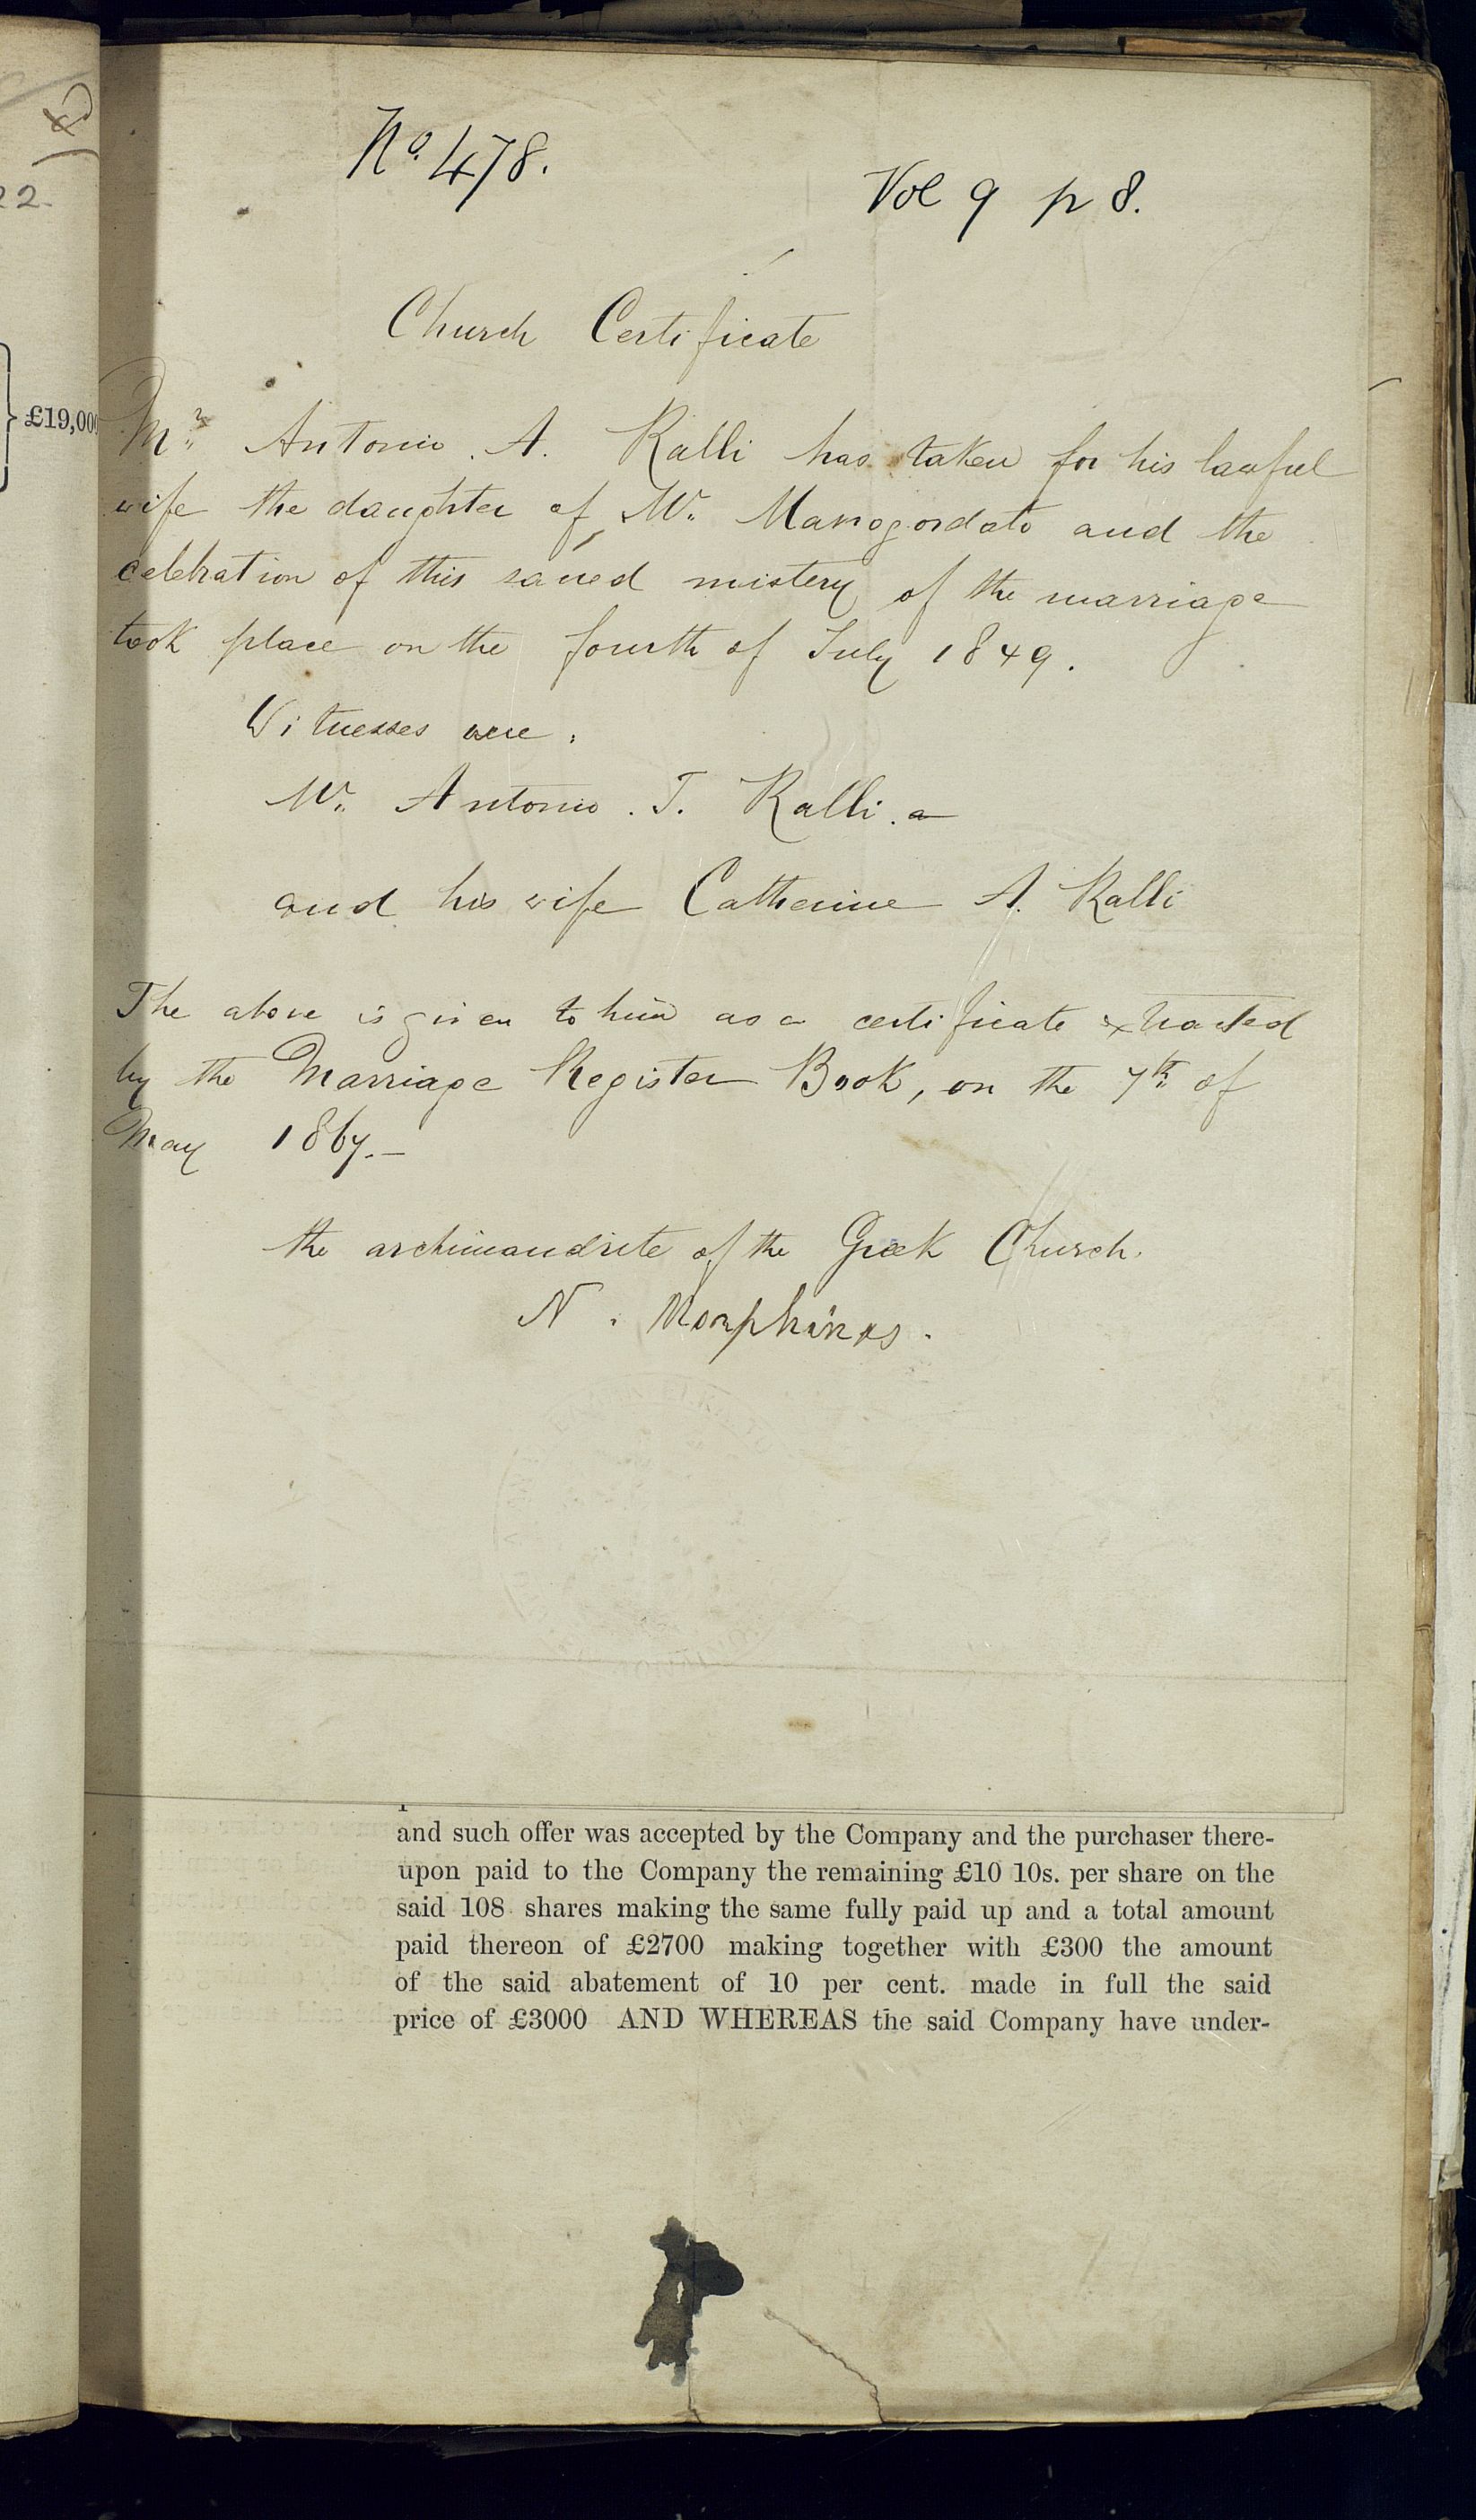 22.
£19,000
No. 478.
Vol 9 p 8.
Church Certificate
Mr. Antonio. A. Ralli has taken for his lawful
wife the daughter of Mr. Mavogordato and the
celebration of this sacred mistery of the marriage
took place on the fourth of July 1849.
Witnesses were:
Mr. Antonio. T. Ralli. a
and his wife Catherine A. Ralli
The above is given to him as a certificate extracted
by the Marriage Register Book, on the 7th of
May 1867.—
the archimandrite of the Greek Church.
N. Morphinos.
and such offer was accepted by the Company and the purchaser there-
upon paid to the Company the remaining £10 10s. per share on the
said 108 shares making the same fully paid up and a total amount
paid thereon of £2700 making together with £300 the amount
of the said abatement of 10 per cent. made in full the said
price of £3000 AND WHEREAS the said Company have under-